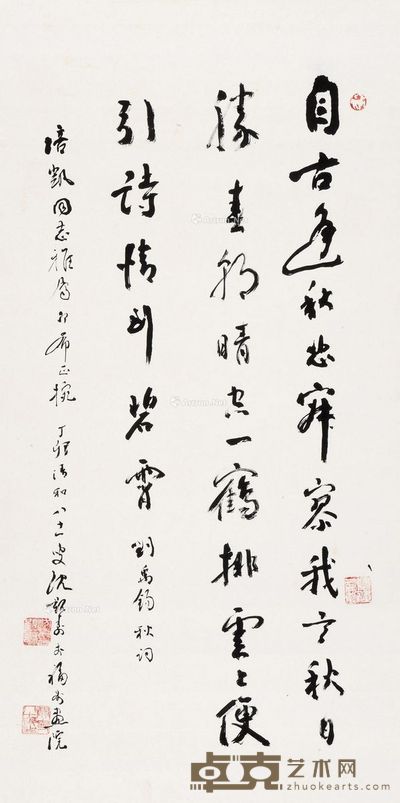 自古逢秋悲寂寥我言秋日
胜春朝晴空一鹤排云上便
引诗情到碧霄 刘禹锡秋词
培凯同志雅属即希正腕 丁卯清和八十一叟沈觐寿于福州画院
卓克艺术网
zhuokearts.com